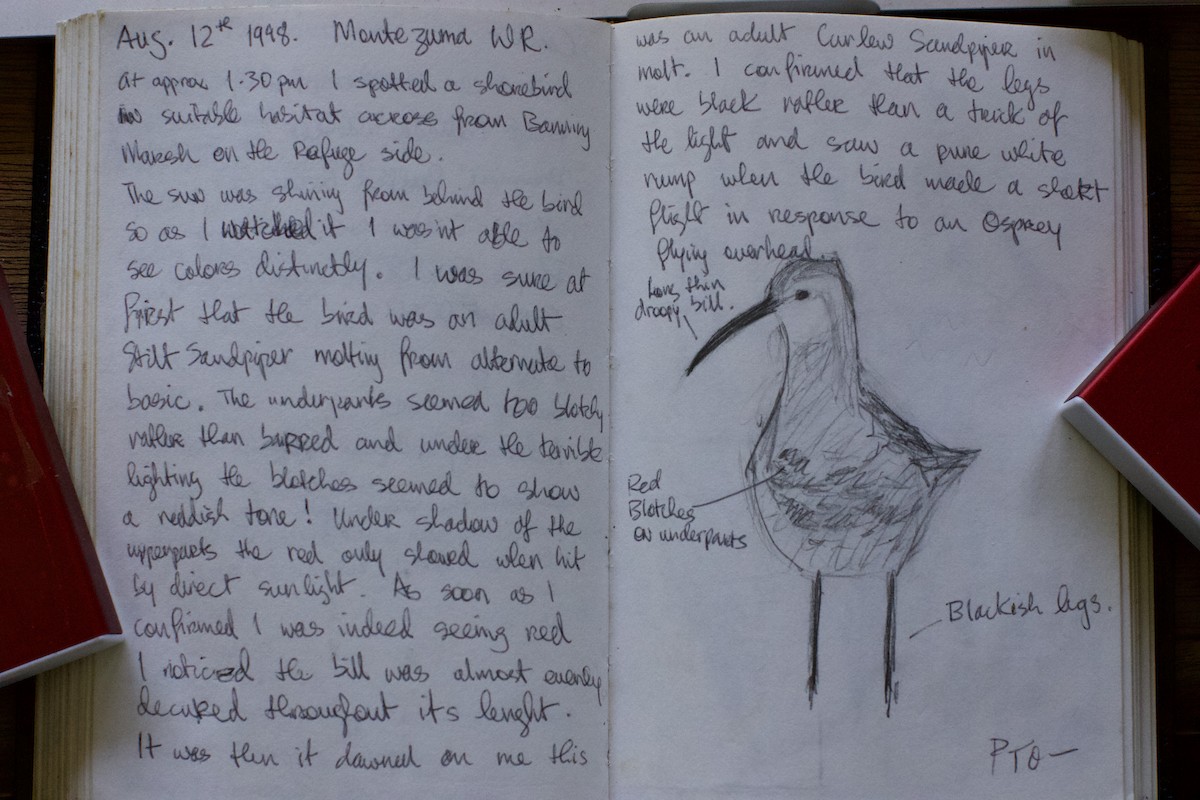 Aug. 12th 1998. Montezuma WR.
at approx 1.30pm I spotted a shorebird
in suitable habitat across from Banning
Marsh on the Refuge side.
The sun was shining from behind the bird
so as I watched it I wasn't able to
see colors distinctly. I was sure at
first that the bird was an adult
Stilt Sandpiper molting from alternate to
basic. The underparts seemed too blotchy
rather than barred and under the terrible
lighting the blotches seemed to show
a reddish tone! Under shadow of the
upperparts the red only showed when hit
by direct sunlight. As soon as I
confirmed I was indeed seeing red
I noticed the bill was almost evenly
decurved throughout it's lenght.
It was then it dawned on me this
was an adult Curlew Sandpiper in
molt. I confirmed that the legs
were black rather than a trick of
the light and saw a pure white
rump when the bird made a short
flight in response to an Osprey
flying overhead.
Long thin
droopy bill.
Red
Blotches
on underparts
Blackish legs.
PTO—